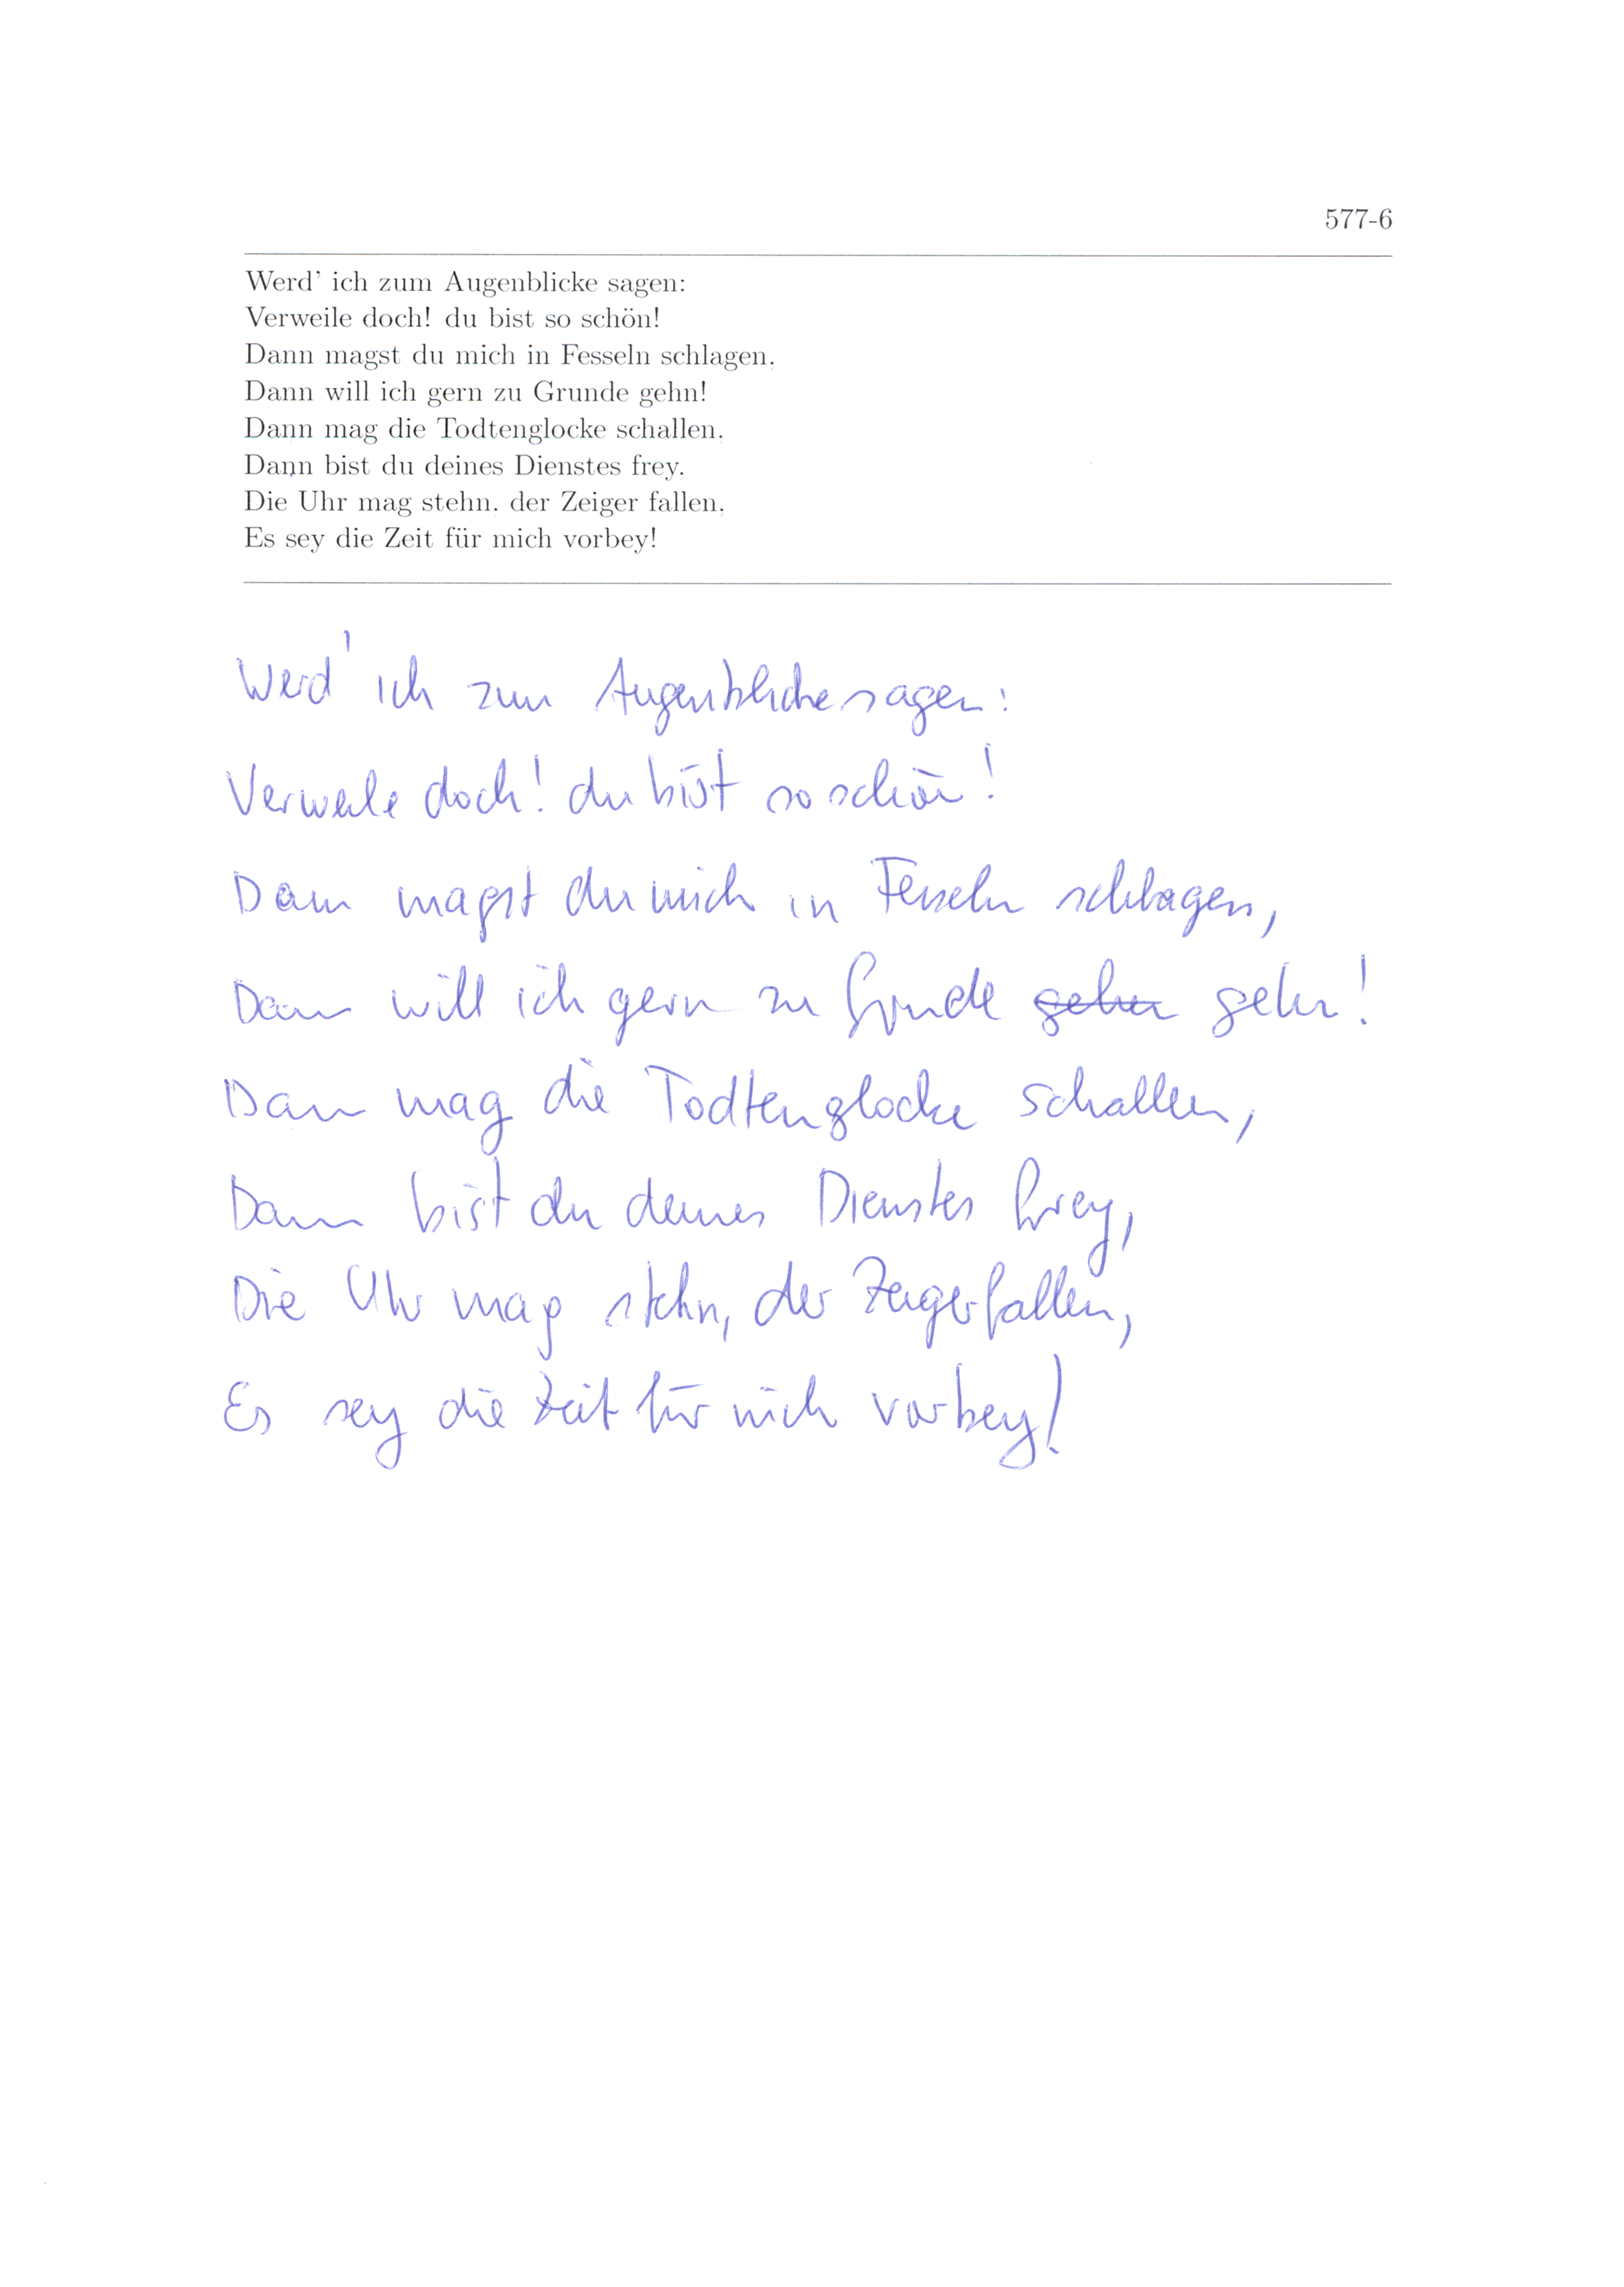 577-6
Werd' ich zum Augenblicke sagen:
Verweile doch! du bist so schön!
Dann magst du mich in Fesseln schlagen,
Dann will ich gern zu Grunde gehn!
Dann mag die Todtenglocke schallen,
Dann bist du deines Dienstes frey,
Die Uhr mag stehn, der Zeiger fallen,
Es sey die Zeit für mich vorbey!
Werd' ich zum Augenblicke sagen:
Verweile doch! du bist so schön!
Dann magst du mich in Fesseln schlagen,
Dann will ich gern zu Grunde gehen gehn!
Dann mag die Todtenglocke schallen,
Dann bist du deines Dienstes frey,
Die Uhr mag stehn, der Zeiger fallen,
Es sey die Zeit für mich vorbey!